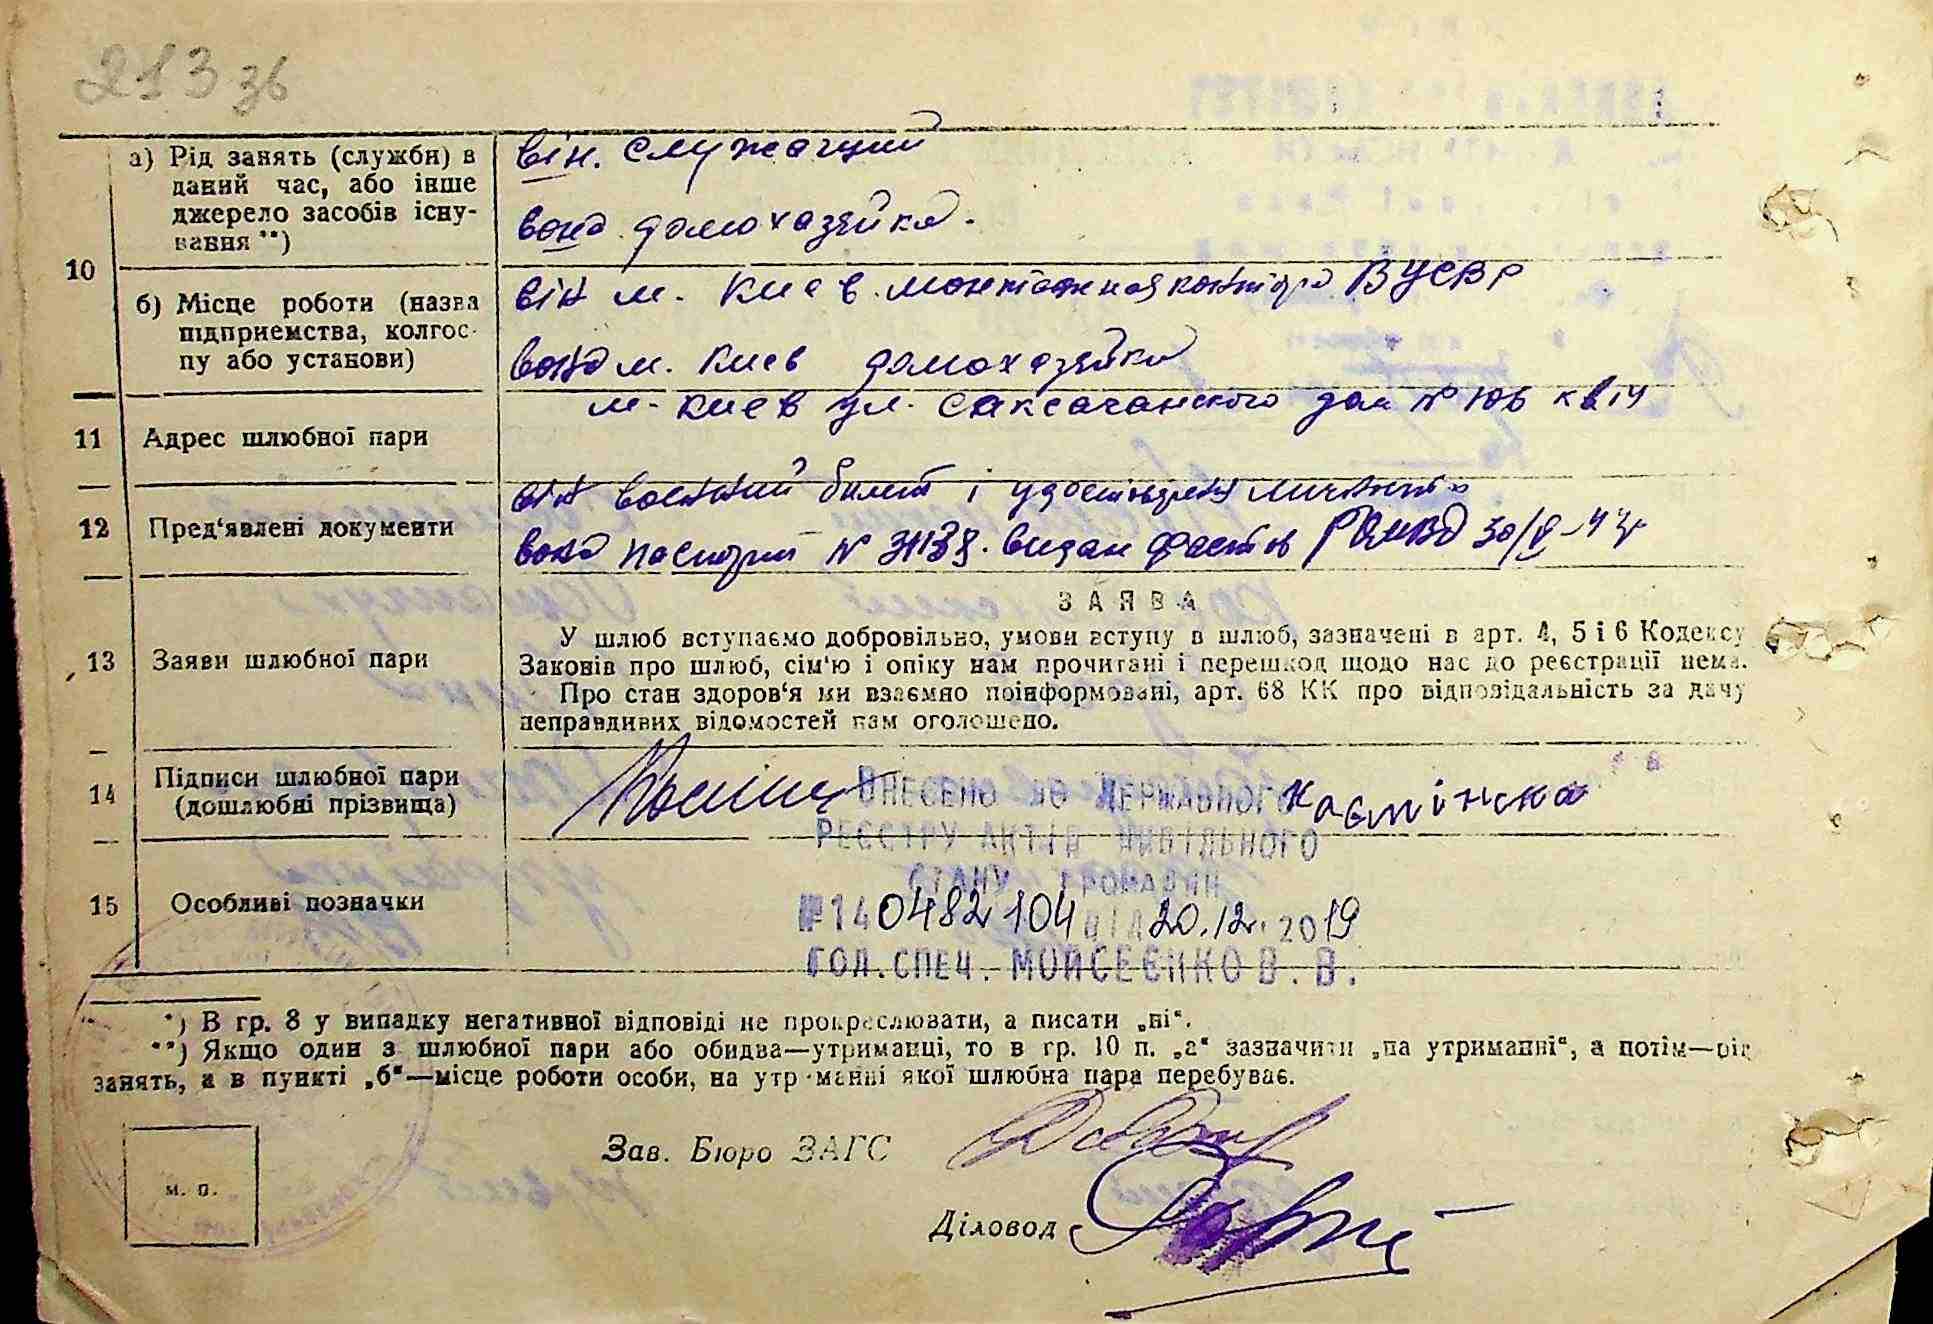 213 зб
а) Рід занять (служби) в
даний час, або інше
джерело засобів існу-
вання **)
він. служащий
вона домохазяйка.
10
б) Місце роботи (назва
підприємства, колгос-
пу або установи)
він м. Киев. монтажная контора
вона м. Киев домохазяйка
11 Адрес шлюбної пари
м. Киев ул. Саксаганского дом №
12 Пред'явлені документи
він военний билет і
вона паспорт № видан Фастов
13 Заяви шлюбної пари
ЗАЯВА
У шлюб вступаємо добровільно, умови вступу в шлюб, зазначені в арт. 4, 5 і 6 Кодексу
Законів про шлюб, сім'ю і опіку нам прочитані і перешкод щодо нас до реєстрації нема.
Про стан здоров'я ми взаємно поінформовані, арт. 68 КК про відповідальність за дачу
неправдивих відомостей нам оголошено.
14 Підписи шлюбної пари
(дошлюбні прізвища)
15 Особливі позначки
ВНЕСЕНО ДО ДЕРЖАВНОГО
РЕЄСТРУ АКТІВ ЦИВІЛЬНОГО
СТАНУ ГРОМАДЯН
№140482104 ВІД 20.12.2019
ГОЛ.СПЕЦ. МОЙСЕЄНКО В.В.
*) В гр. 8 у випадку негативної відповіді не прокреслювати, а писати „ні“.
**) Якщо один з шлюбної пари або обидва—утриманці, то в гр. 10 п. „а“ зазначити „на утриманні“, а потім—рід
занять, а в пункті „б“—місце роботи особи, на утриманні якої шлюбна пара перебуває.
Зав. Бюро ЗАГС
Діловод
м. п.